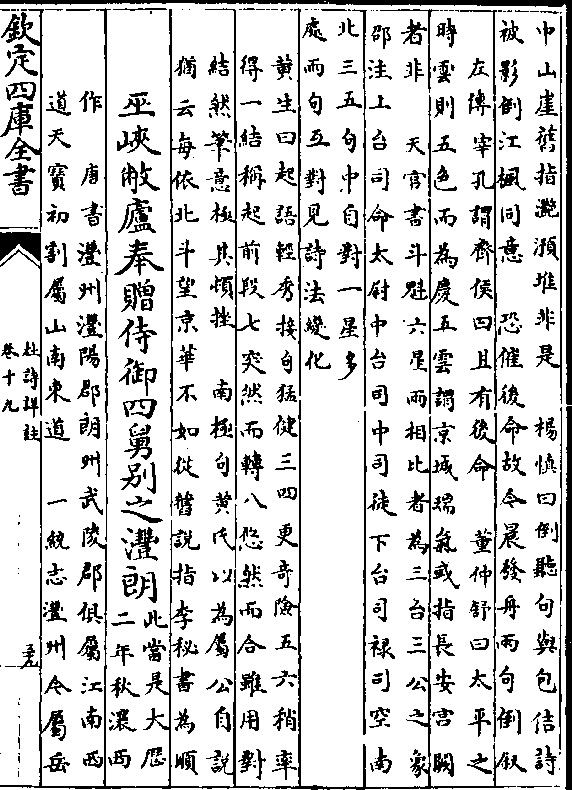 中山崖舊指灧澦堆非是　楊慎曰倒聽句與包佶詩
被影倒江楓同意　恐催後命故令晨發舟兩句倒敘
左傳宰孔謂齊侯曰且有後命　董仲舒曰太平之
時雲則五色而為慶五雲謂京城瑞氣或指長安宮闕
者非　天官書斗魁六星兩兩相比者為三台三公之象
邵注上台司命太尉中台司中司徒下台司祿司空南
北三五句中自對一星多
處而句互對見詩法變化
黃生曰起語輕秀接句猛健三四更奇險五六稍率
得一結稱起前段七突然而轉八悠然而合雖用對
結然筆意極其頓挫　南極句黃氏以為屬公自說
猶云每依北斗望京華不如從舊說指李秘書為順
巫峽敝廬奉贈侍御四舅別之澧朗
此當是大厯
二年秋瀼西
作　唐書澧州澧陽郡朗州武陵郡俱屬江南西
道天寶初割屬山南東道　一統志澧州今屬岳
欽定四庫全書
杜詩詳註
卷十九